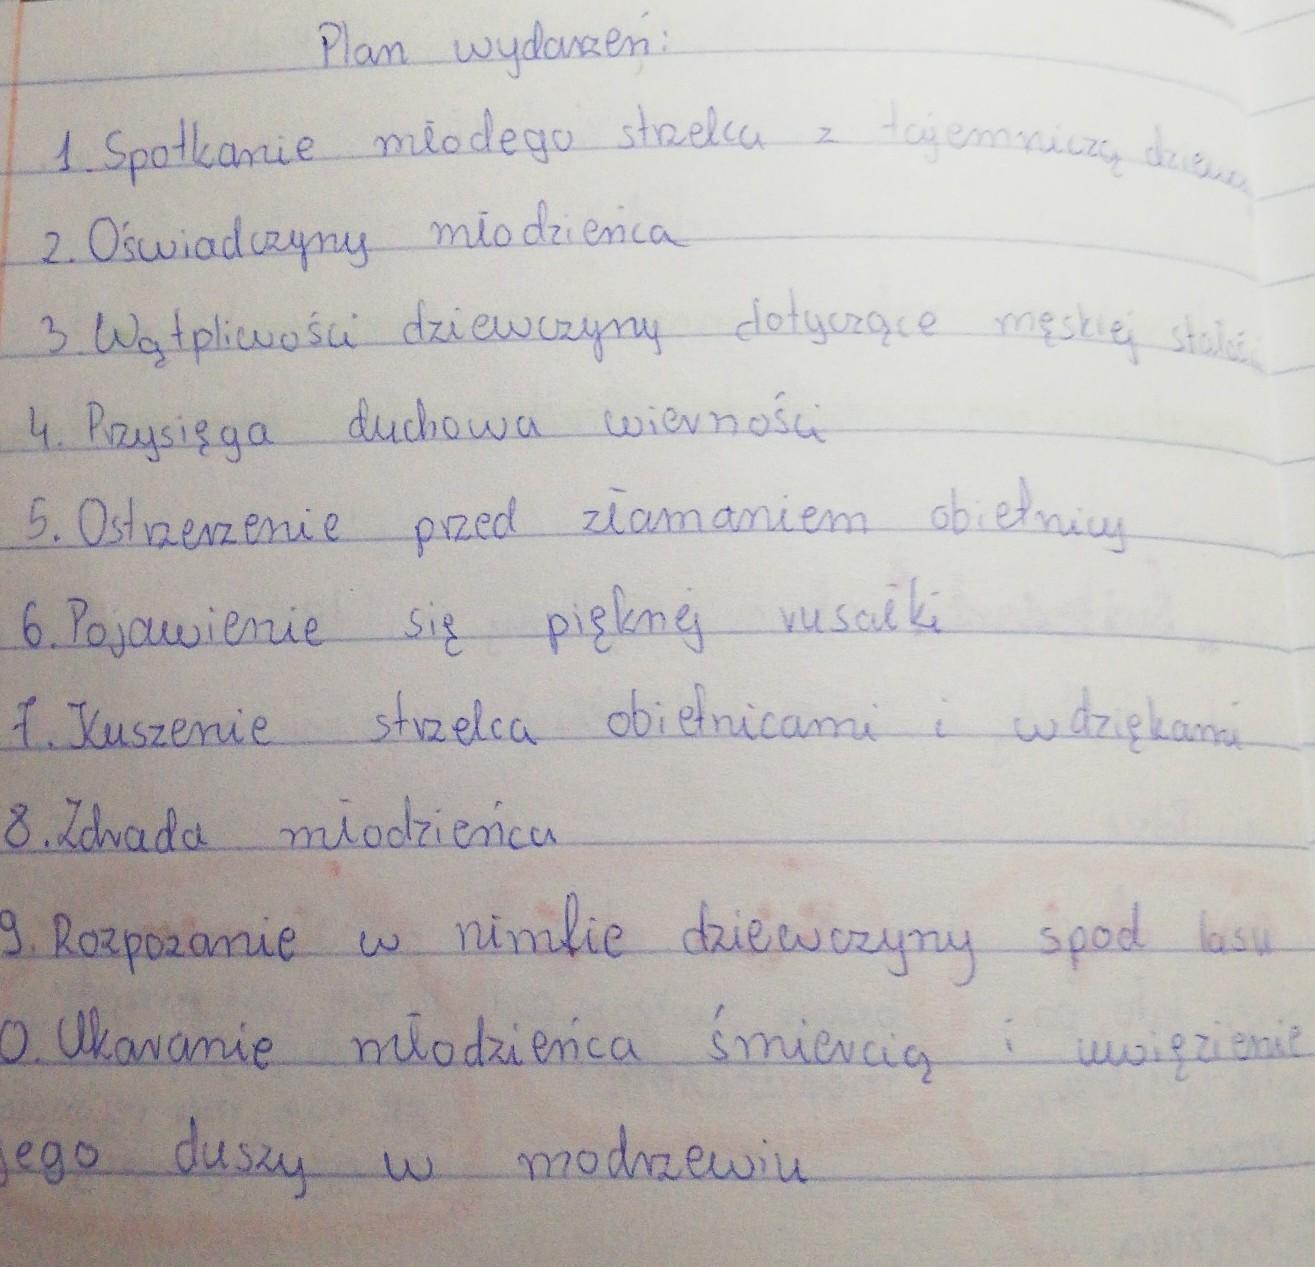 Plan wydarzeń:
1. Spotkanie młodego strzelca z tajemniczą
2. Oświadczyny młodzieńca
3. Wątpliwości dziewczyny dotyczące męskiej
4. Przysięga duchowa wierności
5. Ostrzerzenie przed złamaniem obietnicy
6. Pojawienie się pięknej rusałki
7. Kuszenie strzelca obietnicami i wdziękami
8. Zdrada młodzieńca
9. Rozpozanie w nimfie dziewczyny spod lasu
0. Ukaranie młodzieńca śmiercią i uwięzienie
jego duszy w modrzewiu